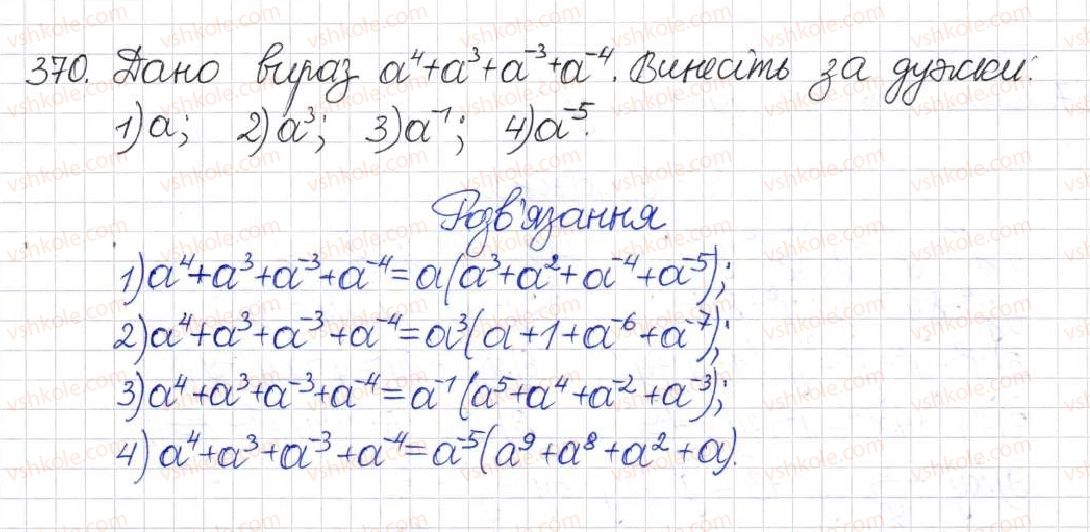 370. Дано вираз a⁴+a³+a⁻³+a⁻⁴. Винесіть за дужки:
1) a; 2) a³; 3) a⁻¹; 4) a⁻⁵.
Розв'язання
1) a⁴+a³+a⁻³+a⁻⁴=a(a³+a²+a⁻⁴+a⁻⁵);
2) a⁴+a³+a⁻³+a⁻⁴=a³(a+1+a⁻⁶+a⁻⁷);
3) a⁴+a³+a⁻³+a⁻⁴=a⁻¹(a⁵+a⁴+a⁻²+a⁻³);
4) a⁴+a³+a⁻³+a⁻⁴=a⁻⁵(a⁹+a⁸+a²+a).